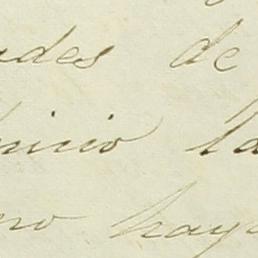 udes de
nicio la
no haya